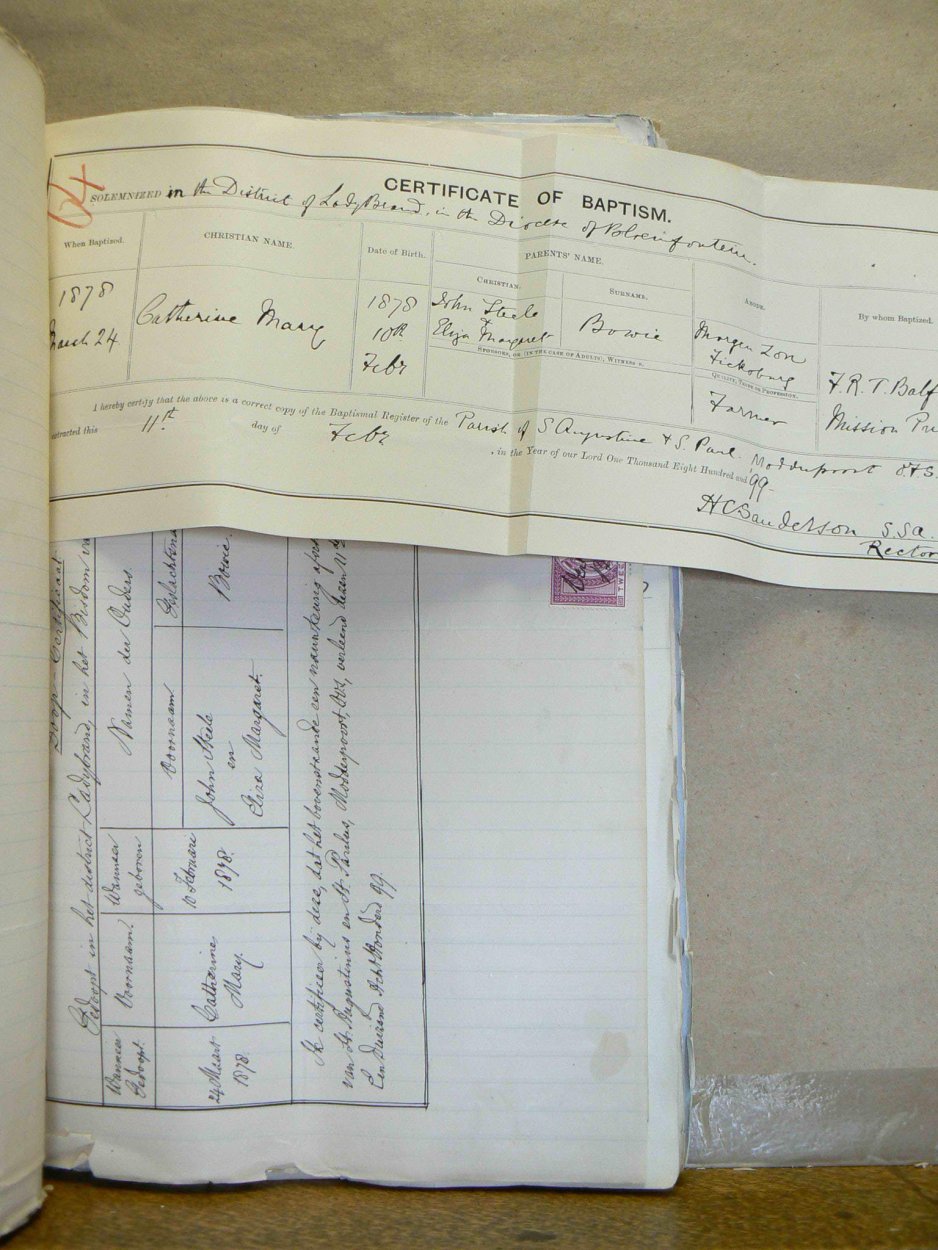 64
CERTIFICATE OF BAPTISM.
SOLEMNIZED in the District of LadyBrand, in the Diocese of Bloemfontein.
When Baptized.
CHRISTIAN NAME.
Date of Birth.
PARENTS' NAME.
CHRISTIAN.
SURNAME.
ABODE.
By whom Baptized.
1878
March 24
Catherine Mary
1878
10th
Febr
John Steele
&
Eliza Margaret
Bowie
Morgen Zon
Ficksburg
SPONSORS, OR (IN THE CASE OF ADULTS) WITNESSES.
QUALITY, TRADE OR PROFESSION.
Farmer
F. R. T. Balf
Mission Pri
I hereby certify that the above is a correct copy of the Baptismal Register of the Parish of S Augustine & S. Paul Modderpoort O.F.S.
extracted this 11th day of Febr, in the Year of our Lord One Thousand Eight Hundred and 99
HCSanderson S.S.A.
Rector
Doop-Certificaat
Gedoopt in het district Ladybrand, in het Bisdom va
Wanneer
Gedoopt.
Voornaam.
Wanneer
geboren
Namen der Ouders.
Voornaam
Geslachtsna
24 Maart
1878.
Catherine
Mary.
10 Februari
1878.
John Steele
en
Eliza Margaret.
Bowie.
Ik certificeer by deze, dat het bovenstaande een
van St. Augustinus en St. Paulus, Modderpoort, OVS, 11de
Een Duizend Acht Honderd 99.
TWE